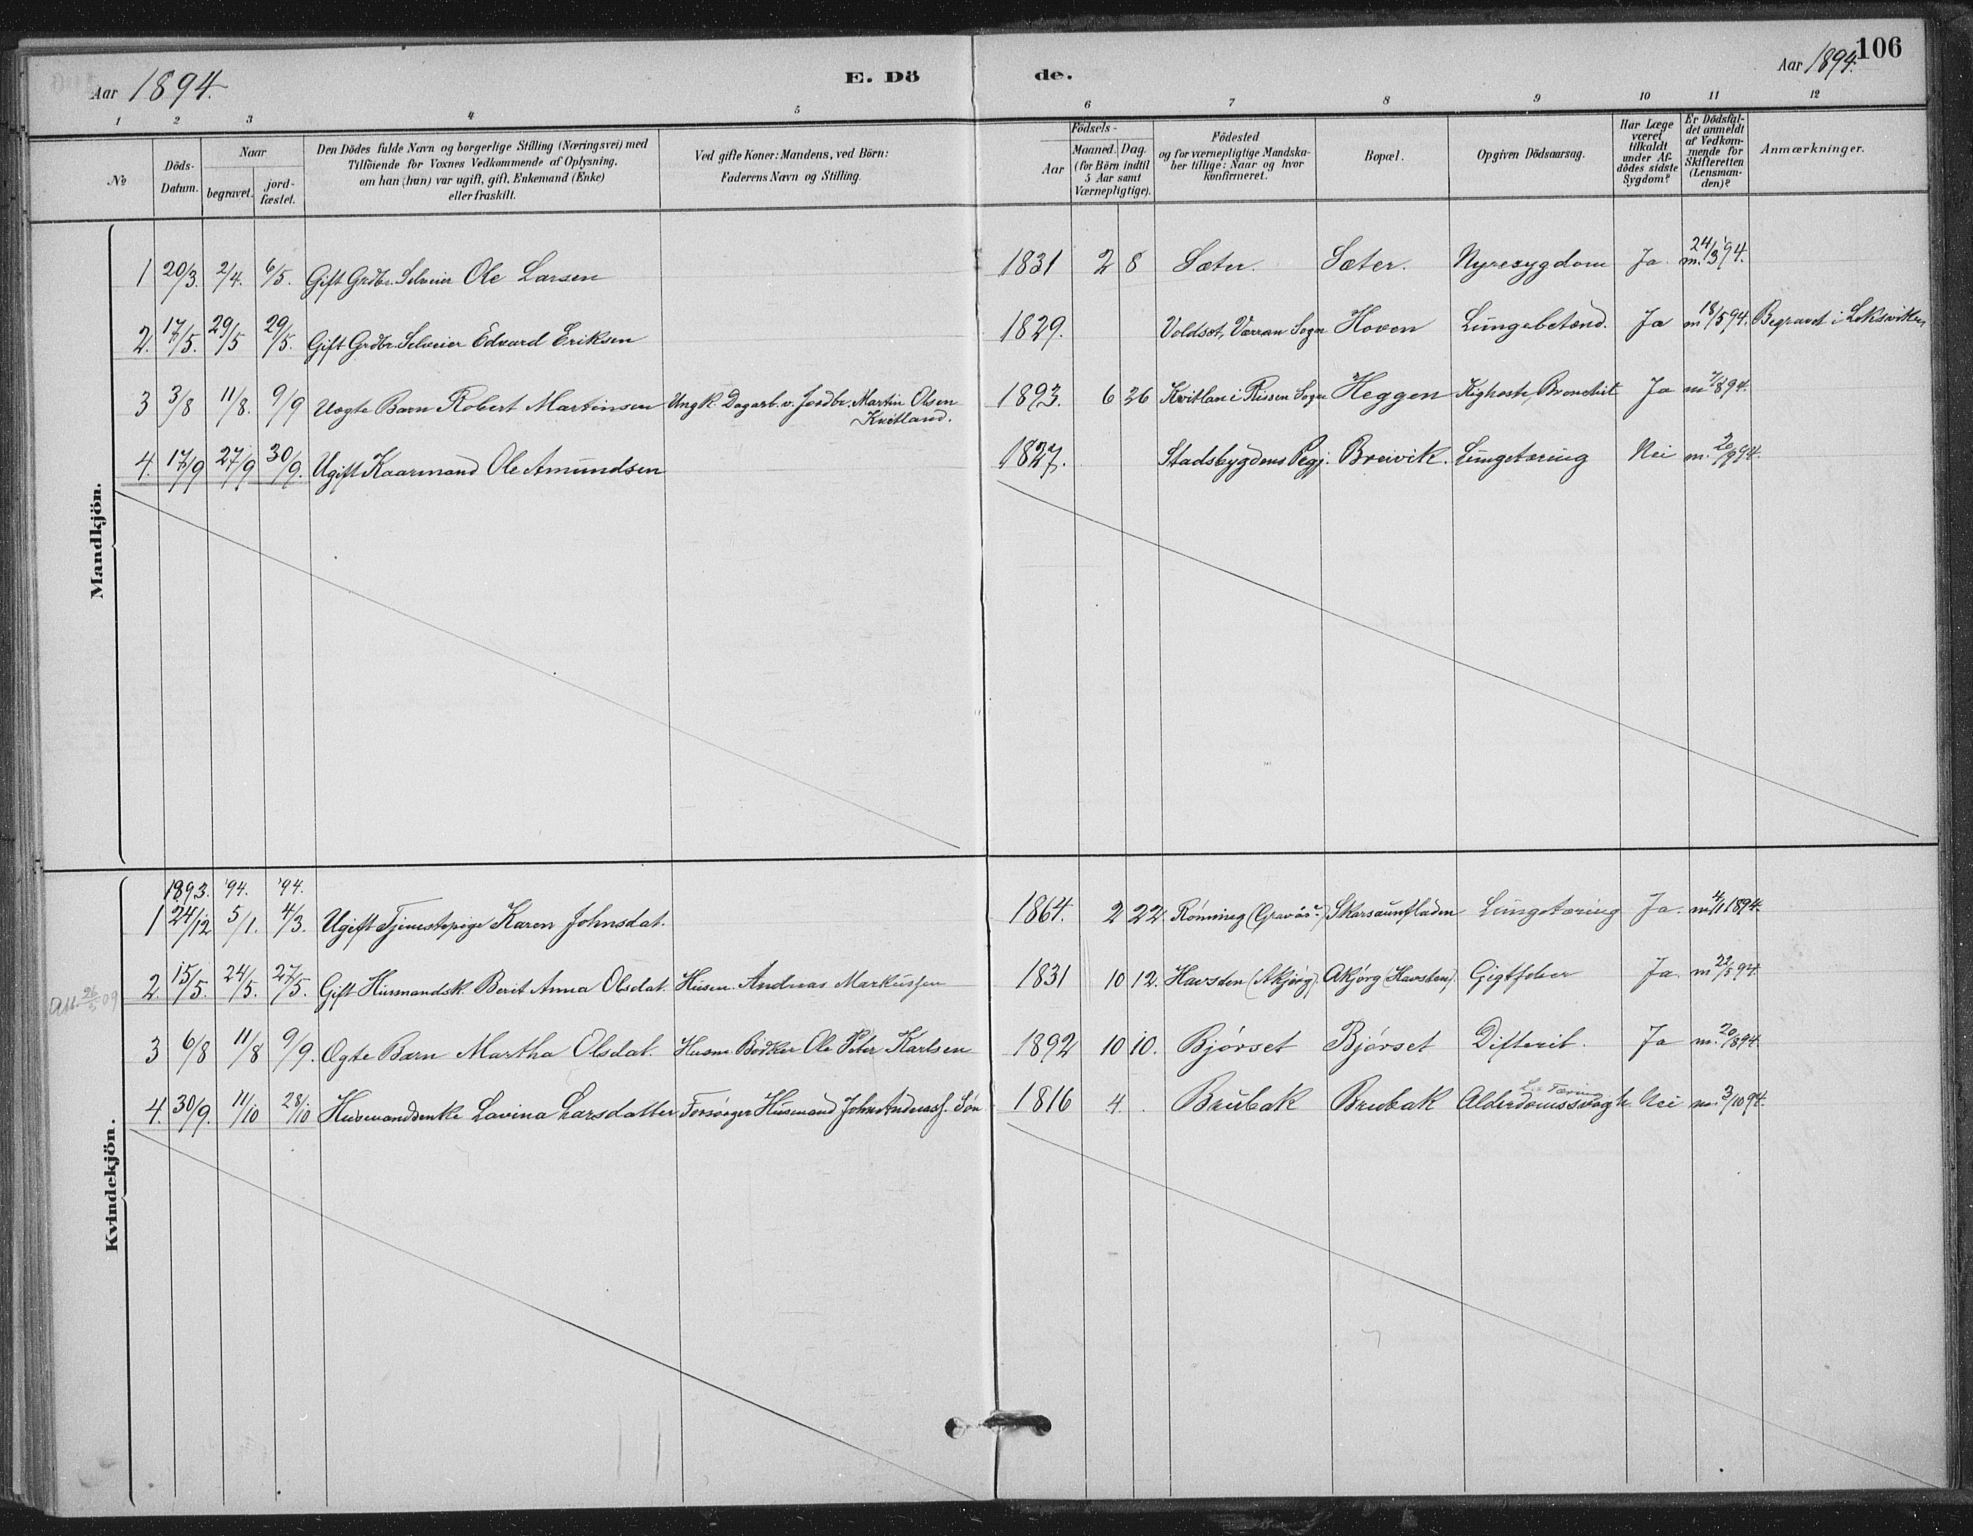 Aar 1894. E. Dö de. Aar 1894. 106
1 2 3 4 5 6 7 8 9 10 11 12
№ Döds-Datum. Naar begravet. jord-fæstet. Den Dödes fulde Navn og borgerlige Stilling (Næringsvei) med Tilföiende for Voxnes Vedkommende af Oplysning, om han (hun) var ugift, gift, Enkemand (Enke) eller fraskilt. Ved gifte Koner: Mandens, ved Börn: Faderens Navn og Stilling. Födsels- Aar Maaned. Dag. (for Börn indtil 5 Aar samt Værnepligtige). Födested og for værnepligtige Mandskaber tillige: Naar og hvor Konfirmeret. Bopæl. Opgiven Dödsaarsag. Har Læge været tilkaldt under Afdödes sidste Sygdom? Er Dödsfaldet anmeldt af Vedkommende for Skifteretten (Lensmanden)? Anmærkninger.
Mandkjön.
1 20/3. 2/4. 6/5. Gift Grdbr. Selveier Ole Larsen 1831 2 8 Sæter. Sæter. Nyresygdom Ja. m. 24/3 '94.
2. 17/5. 29/5 29/5. Gift Grdbr. Selveier Edvard Eriksen 1829. Voldset, Værran Sogn Hoven Lungebetænd. Ja m 18/5 94. Begravet i Leksviken
3 3/8 11/8. 9/9 Uægte Barn Robert Martinsen Ungk. Dagarb. v. Jordbr. Martin Olsen Kvitland. 1893. 6 26 Kvitlan i Rissen Sogn Heggen Kighoste, Bronchit Ja m 7/8 94.
4. 17/9 27/9 30/9. Ugift Kaarmand Ole Amundsen 1827. Stadsbygdens Pgj. Breivik. Lungetæring Nei m. 20/9 94.
Kvindekjön.
1893. '94. '94.
1 24/12 5/1. 4/3. Ugift Tjenestepige Karen Johnsdat. 1864. 2 22 Rönning Skarsaunfladen Lungetæring Ja. m 4/1 1894.
2. 15/5. 24/5. 27/5. Gift Husmandsk. Berit Anna Olsdat. Husm. Andreas Markussen 1831 10 12. Havsten (Akjörg). Akjörg (Havsten). Gigtfeber Ja. m 22/5 94.
26/5 09
3 6/8 11/8 9/9. Ægte Barn Martha Olsdat. Husm. Bödker Ole Peter Karlsen 1892 10 10. Bjórset Bjórset Difterit. Ja m. 20/8 94
4. 30/9. 11/10 28/10 Husmandsenke Lavina Larsdatter Forsörger Husmand John Andreass. Sön 1816 4. Brubak Brubak Alderdomssvagh. Nei m. 3/10 94.